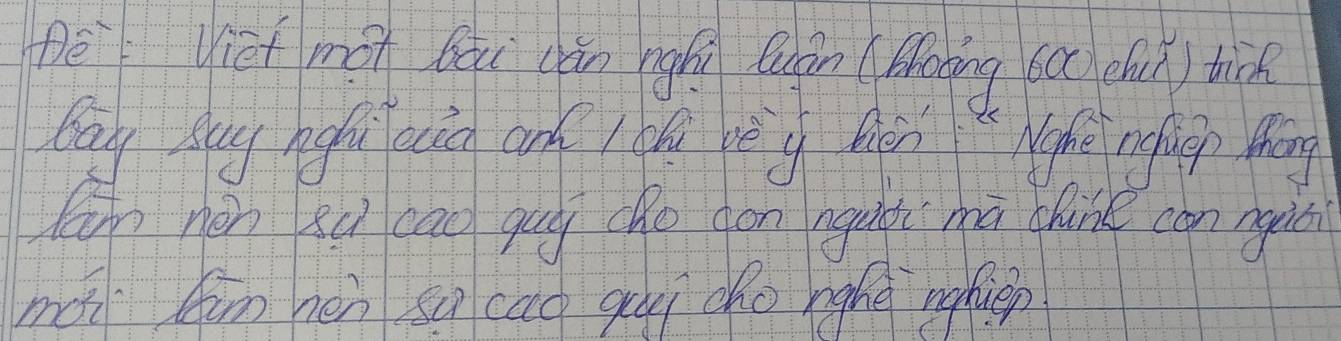 Đề: Viết một bài văn nghị luận (khoảng 600 chữ) trình
bày suy nghĩ của anh / chị về ý kiến: "Nghề nghiệp không
làm nên sự cao quý cho con người mà chính con người
mới làm nên sự cao quý cho nghề nghiệp.